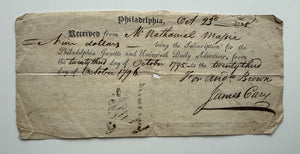 Philadelphia, Oct 23d 1795
Received from Mr Nathaniel Magie
Nine dollars being the Subscription for the
Philadelphia Gazette and Universal Daily Advertiser, from
the twenty third day of October 1795 to the twenty third
day of October 1796
For Andw Brown
James Cary